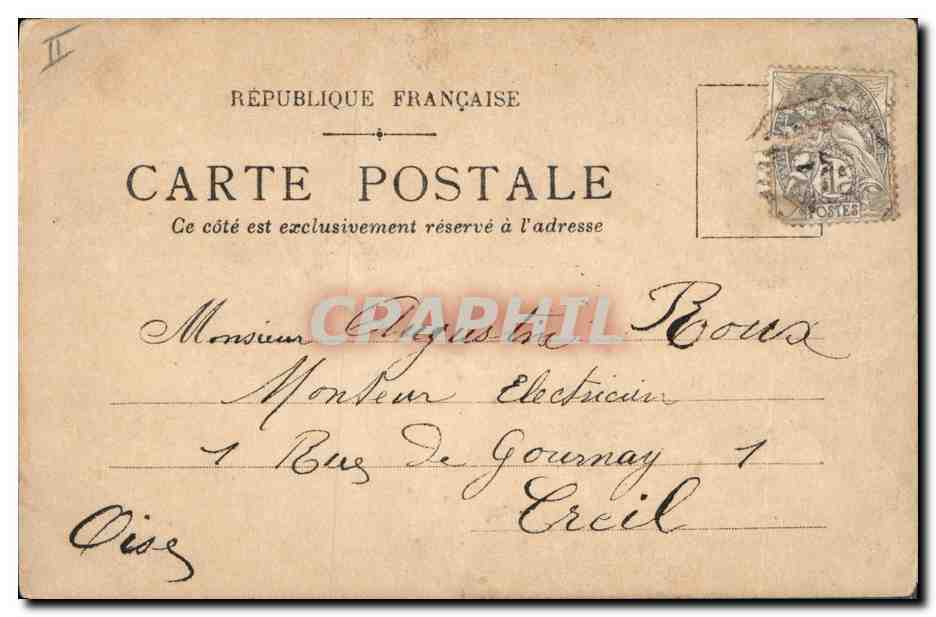 II
RÉPUBLIQUE FRANÇAISE
CARTE POSTALE
Ce côté est exclusivement réservé à l'adresse
1c
POSTES
CPAPHIL
Monsieur Auguste Roux
Monteur Electricien
1 Rue de Gournay 1
Creil
Oise